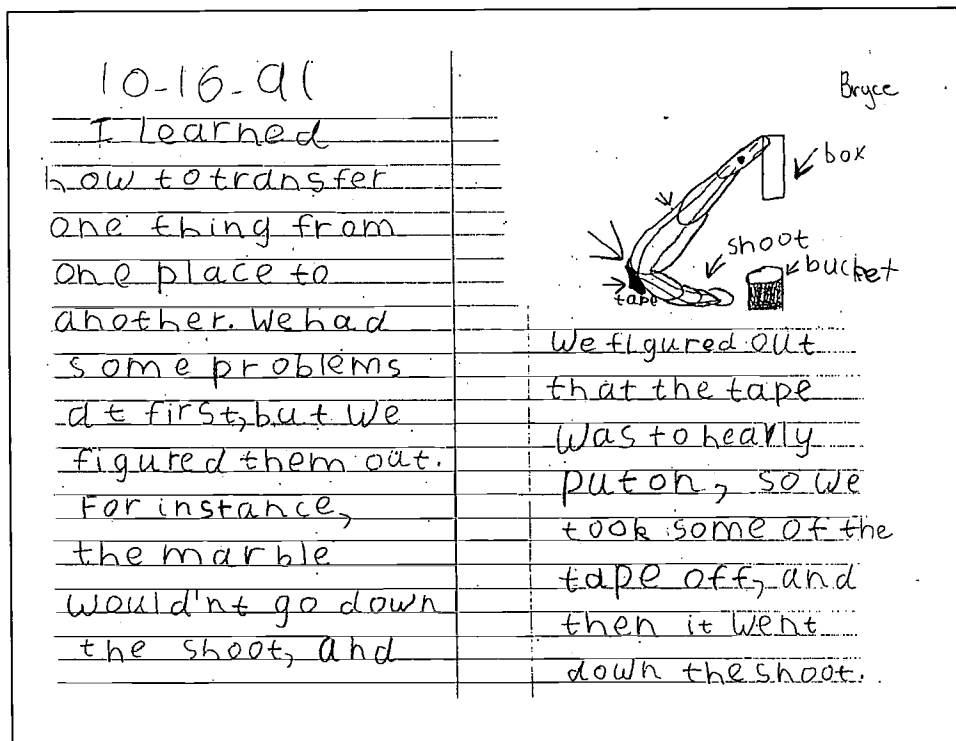 10-16-91
I learned
how to transfer
one thing from
one place to
another. We had
some problems
at first, but we
figured them out.
For instance,
the marble
would'nt go down
the shoot, and
Bryce
box
shoot
bucket
tape
We figured out
that the tape
was to heavly
put on, so we
took some of the
tape off, and
then it went
down the shoot.